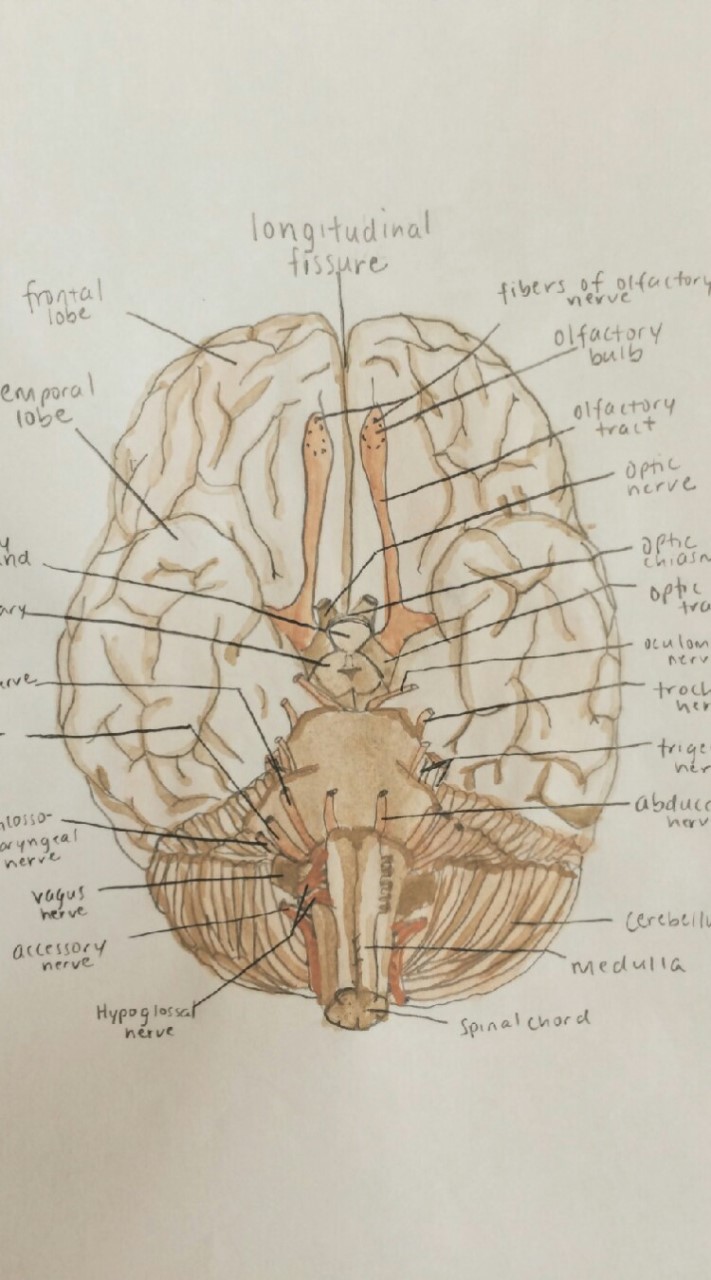 longitudinal
fissure
frontal
lobe
fibers of olfactory
nerve
olfactory
bulb
emporal
lobe
olfactory
tract
optic
nerve
y
nd
optic
chiasm
optic
tra
ary
oculom
nerv
erve
troch
ner
trige
ner
abduce
nerv
hlosso-
aryngeal
nerve
vagus
nerve
cerebellu
accessory
nerve
medulla
Hypoglossal
nerve
Spinal chord